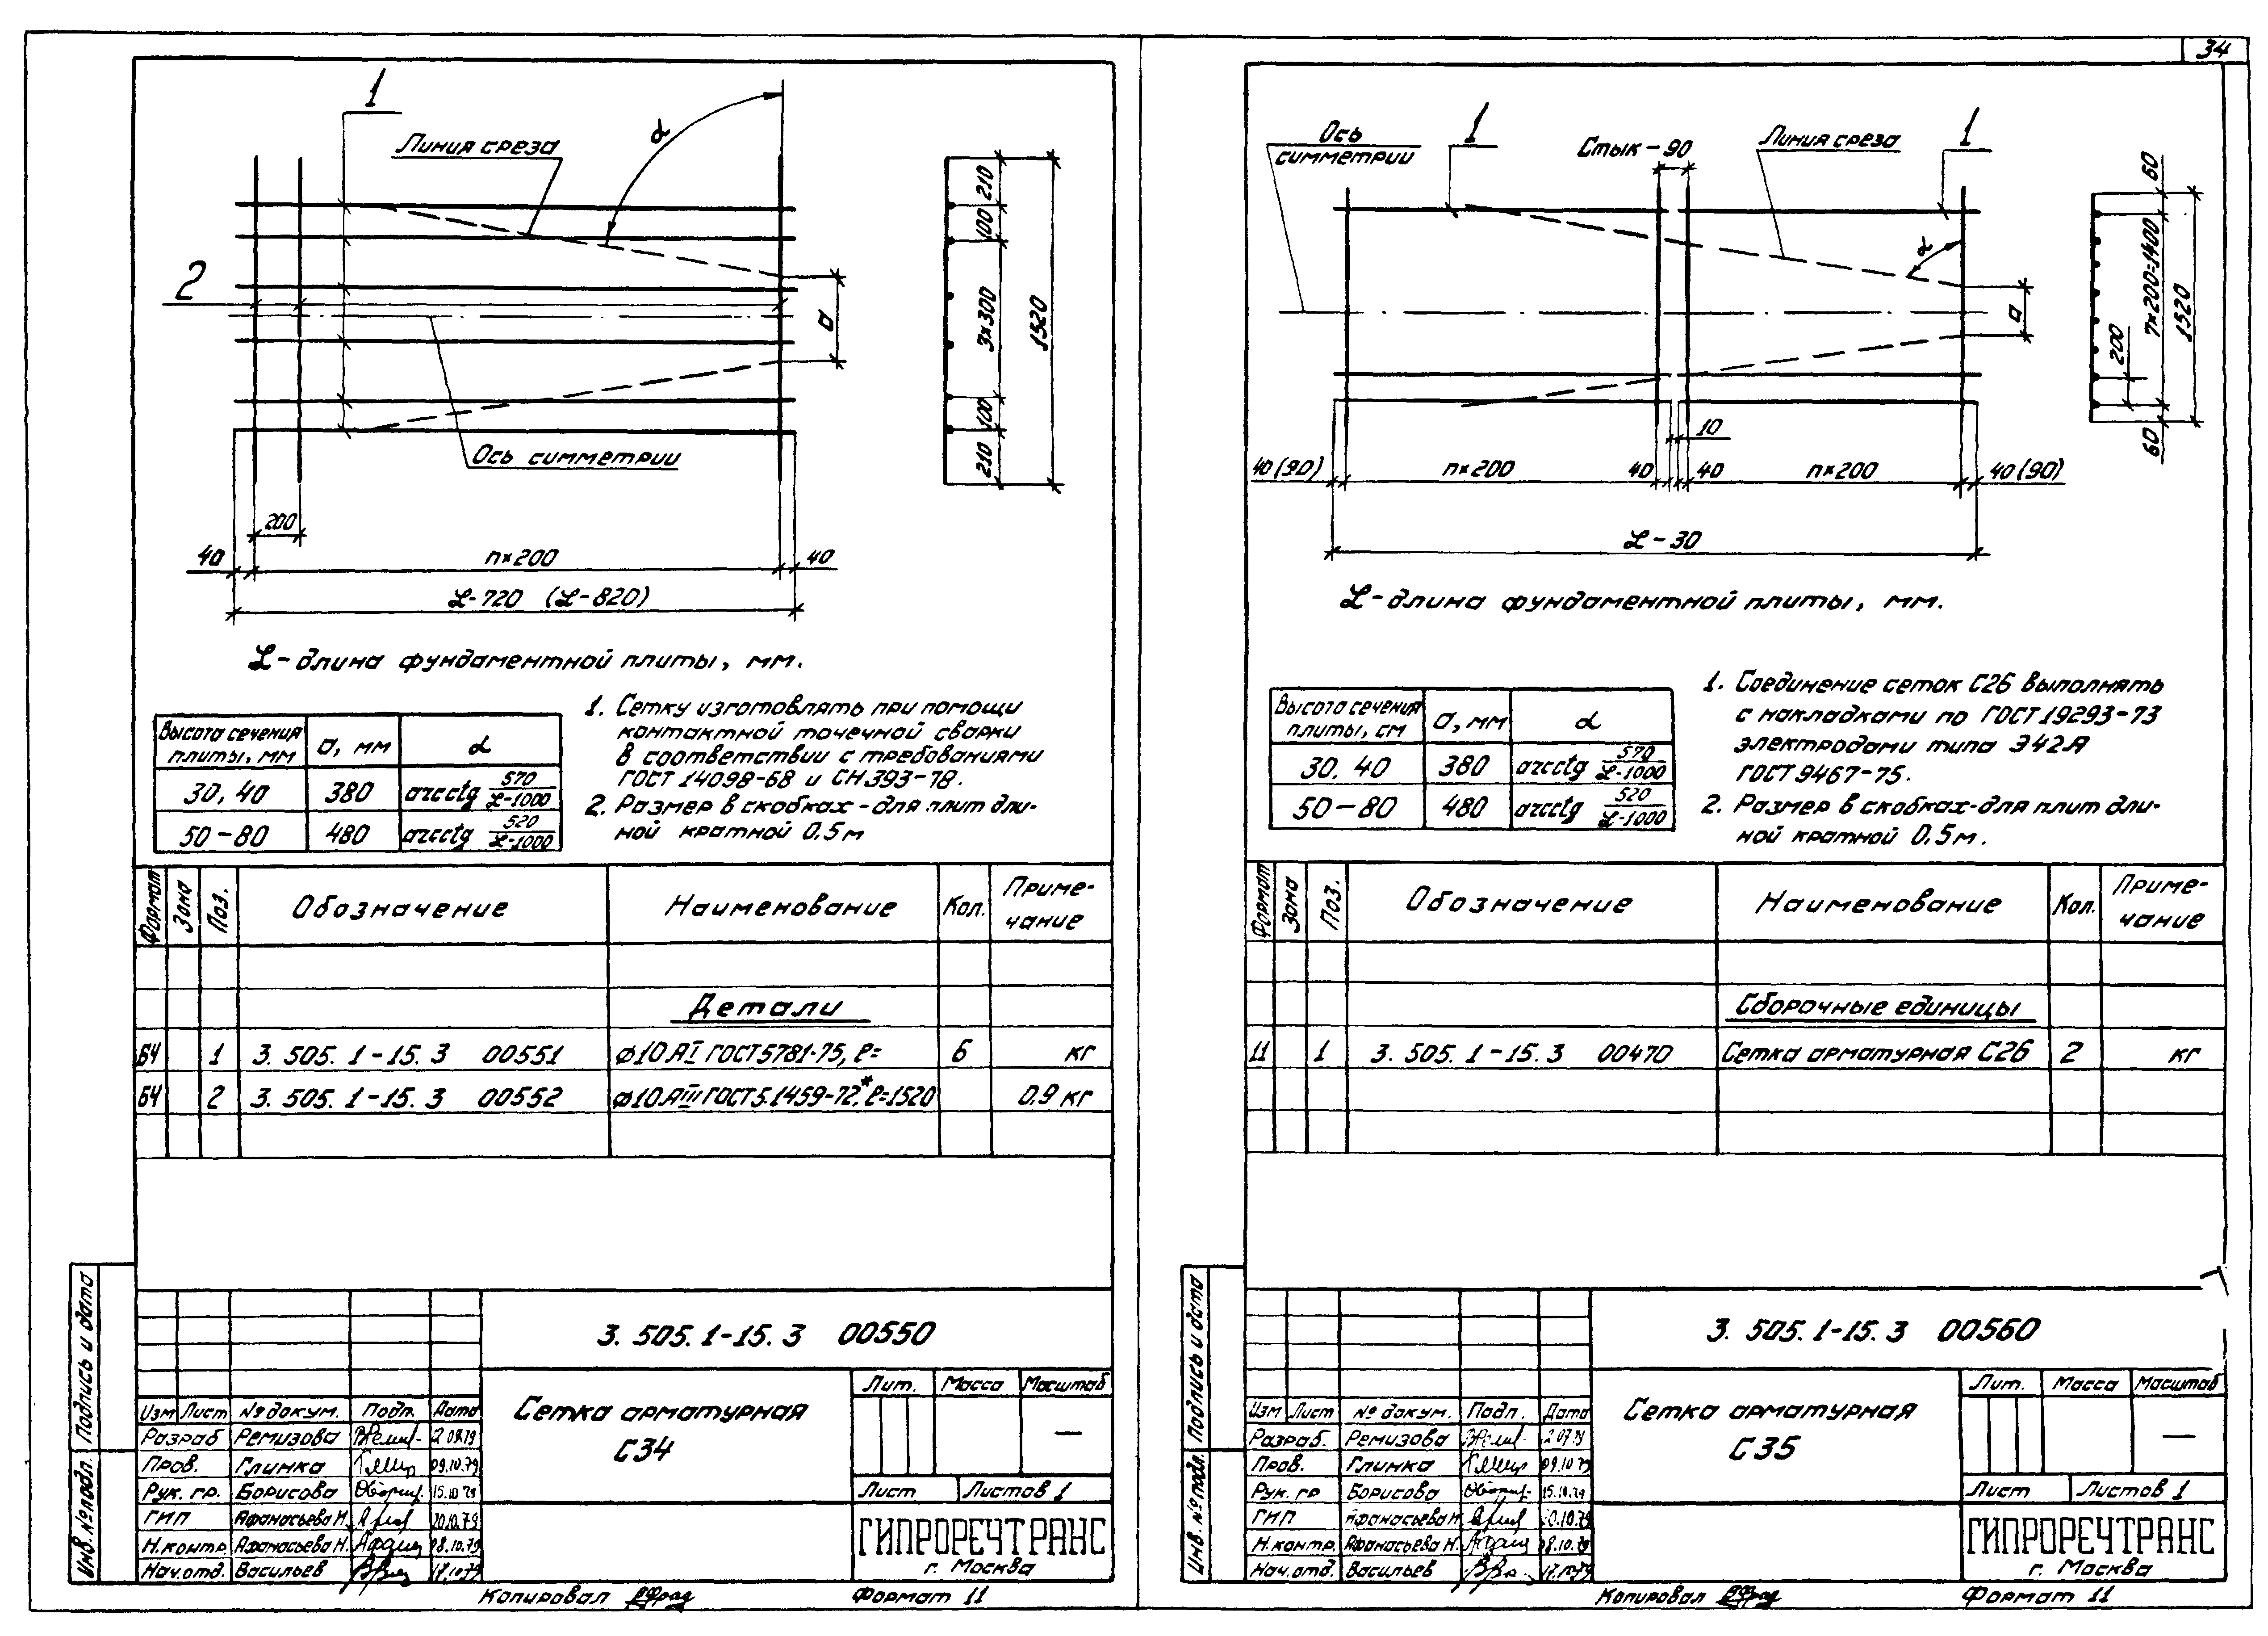 34
1
Линия среза
α
2
а
Ось симметрии
200
40
n×200
40
ℒ-720 (ℒ-820)
210
100
3×300
100
210
1520
ℒ-длина фундаментной плиты, мм.
Высота сечения плиты, мм
а, мм
α
30, 40
380
arcctg 570/ℒ-1000
50-80
480
arcctg 520/ℒ-1000
1. Сетку изготовлять при помощи
контактной точечной сварки
в соответствии с требованиями
ГОСТ 14098-68 и СН 393-78.
2. Размер в скобках - для плит дли-
ной кратной 0,5м
Формат
Зона
Поз.
Обозначение
Наименование
Кол.
Приме-
чание
Детали
БЧ 1 3. 505. 1-15. 3 00551 ø10 АI ГОСТ 5781-75, ℓ= 6 кг
БЧ 2 3. 505. 1-15. 3 00552 ø10 АIII ГОСТ 5.1459-72*, ℓ=1520 0.9 кг
3. 505. 1-15. 3 00550
Сетка арматурная
С34
Лит. Масса Масштаб
—
Лист Листов 1
ГИПРОРЕЧТРАНС
г. Москва
Изм Лист № докум. Подп. Дата
Разраб Ремизова
Пров. Глинка 09.10.79
Рук. гр. Борисова 15.10.79
ГИП Афанасьева Н. 20.10.79
Н.контр. Афанасьева Н.
Нач.отд. Васильев
Подпись и дата
Инв. № подл.
Копировал
Формат 11
Ось
симметрии
1
Стык-90
Линия среза
1
α
а
10
40(90)
n×200
40
40
n×200
40(90)
ℒ-30
60
7×200=1400
200
1520
60
ℒ-длина фундаментной плиты, мм.
Высота сечения плиты, см
а, мм
α
30, 40
380
arcctg 570/ℒ-1000
50-80
480
arcctg 520/ℒ-1000
1. Соединение сеток С26 выполнять
с накладками по ГОСТ 19293-73
электродами типа Э42А
ГОСТ 9467-75.
2. Размер в скобках-для плит дли-
ной кратной 0,5м.
Формат
Зона
Поз.
Обозначение
Наименование
Кол.
Приме-
чание
Сборочные единицы
11 1 3. 505. 1-15. 3 00470 Сетка арматурная С26 2 кг
3. 505. 1-15. 3 00560
Сетка арматурная
С35
Лит. Масса Масштаб
—
Лист Листов 1
ГИПРОРЕЧТРАНС
г. Москва
Изм Лист № докум. Подп. Дата
Разраб. Ремизова
Пров. Глинка 09.10.79
Рук. гр Борисова 15.10.79
ГИП Афанасьева Н.
Н.контр. Афанасьева Н.
Нач.отд. Васильев
Подпись и дата
Инв. № подл.
Копировал
Формат 11